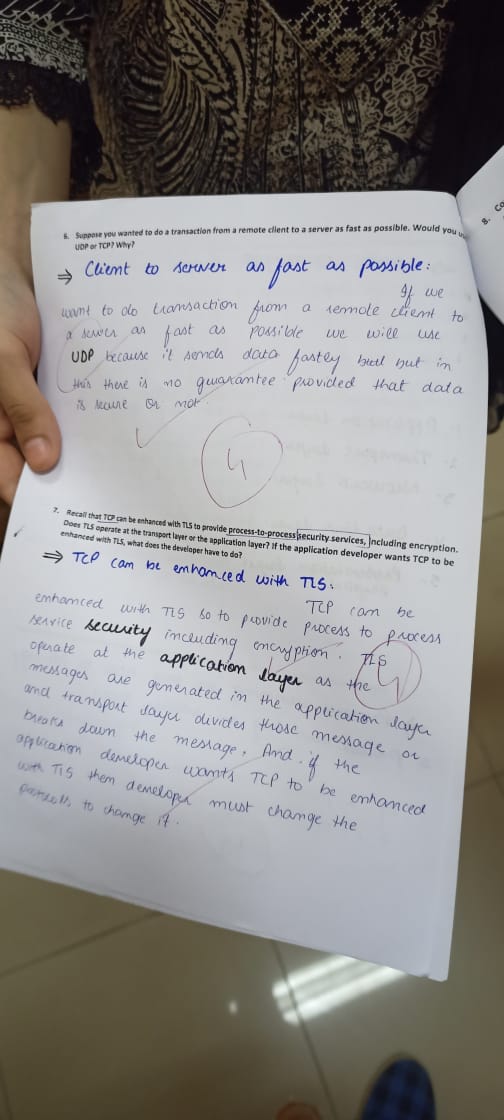 6. Suppose you wanted to do a transaction from a remote client to a server as fast as possible. Would you
UDP or TCP? Why?
8. Co
⇒ Client to server as fast as possible:
If we
want to do transaction from a remote client to
a server as fast as possible we will use
UDP because it sends data fastly but but in
this there is no guarantee provided that data
is secure or not.
4
7. Recall that TCP can be enhanced with TLS to provide process-to-process security services, including encryption.
Does TLS operate at the transport layer or the application layer? If the application developer wants TCP to be
enhanced with TLS, what does the developer have to do?
⇒ TCP can be enhanced with TLS:
TCP can be
enhanced with TLS so to provide process to process
service security including encryption. TLS
4
operate at the application layer as the
messages are generated in the application layer
and transport layer divides those message or
breaks down the message. And if the
application developer wants TCP to be enhanced
with TLS them developer must change the
to change it.